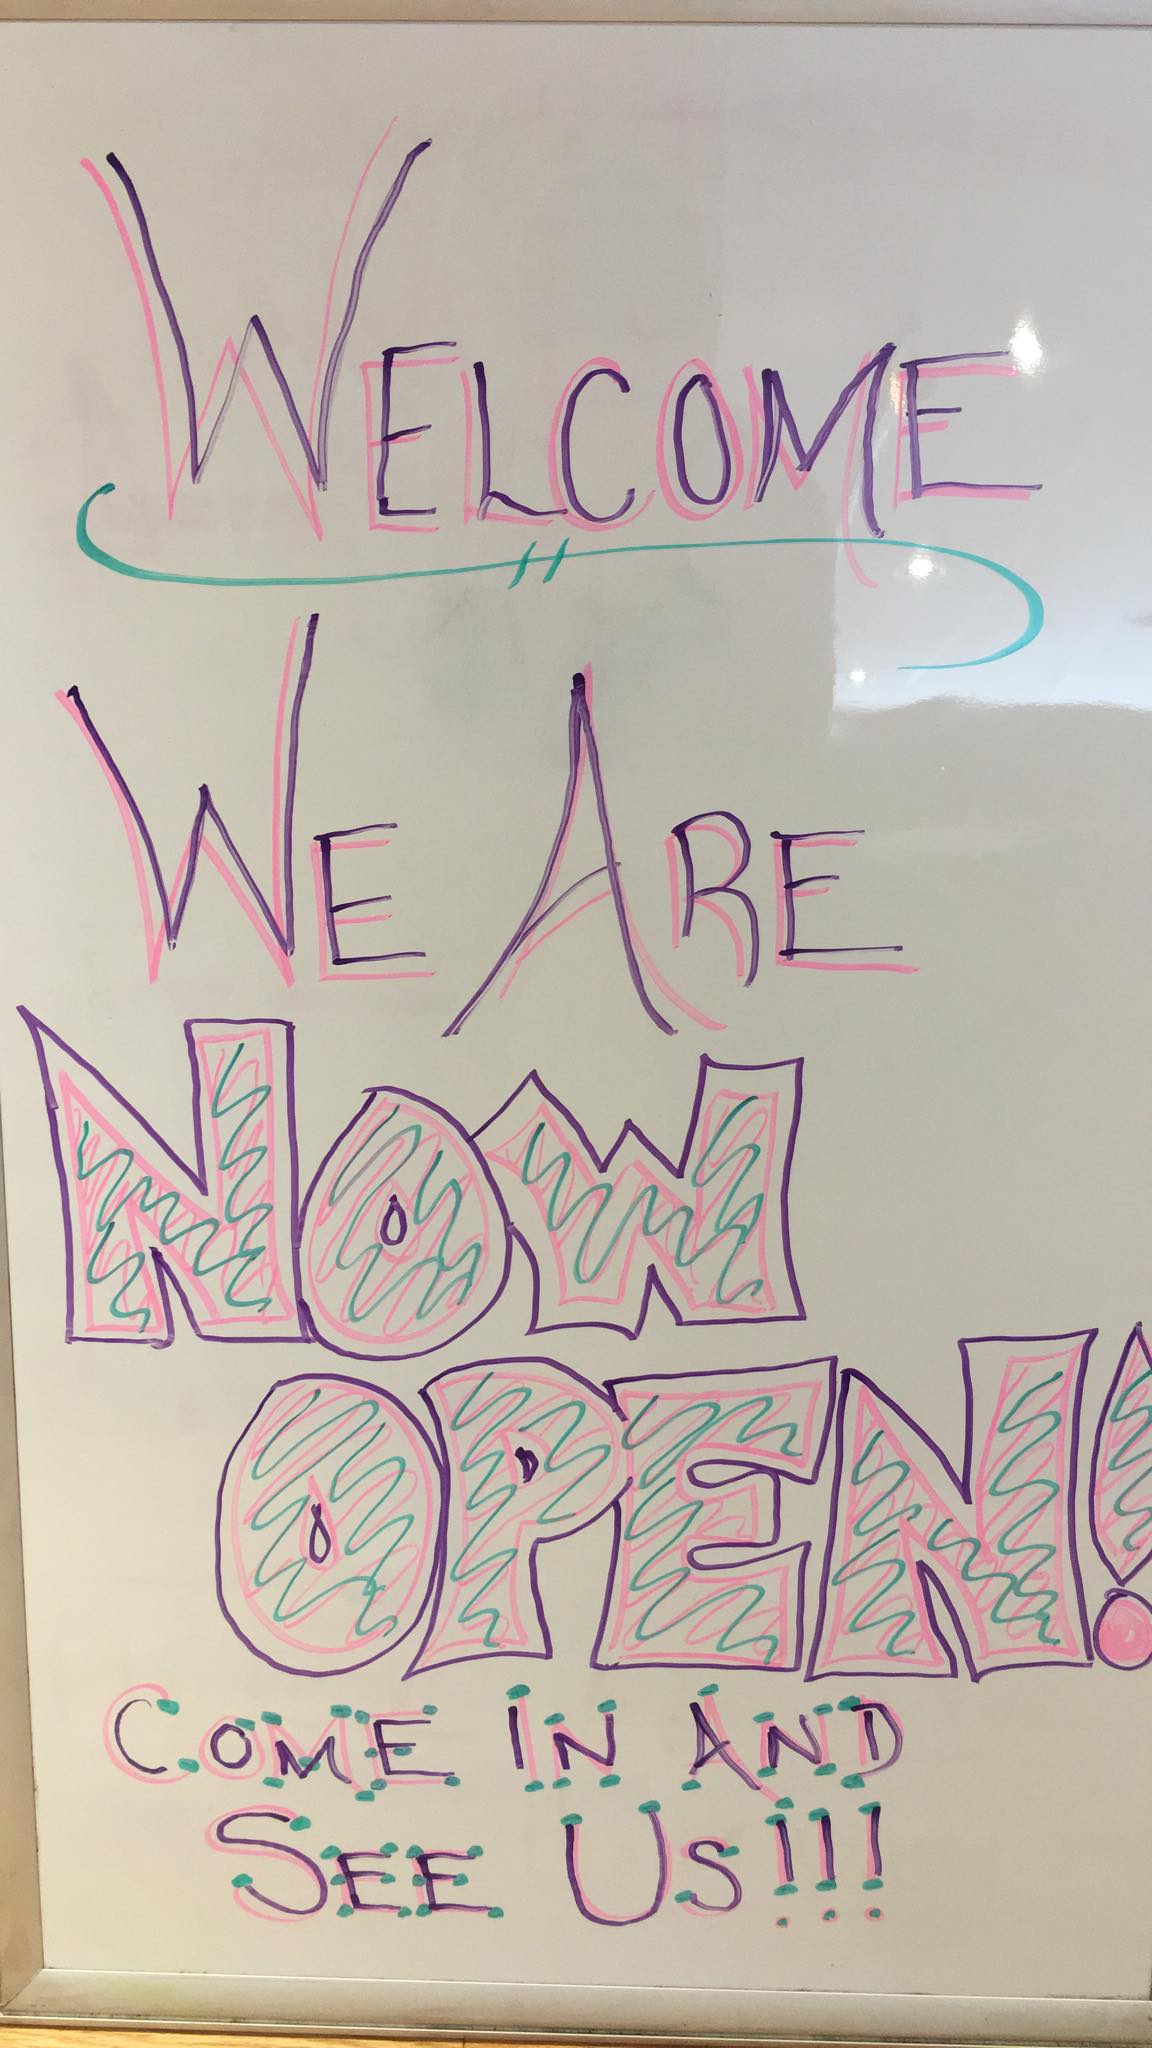 WELCOME
WE ARE
NOW
OPEN!
COME IN AND
SEE US!!!